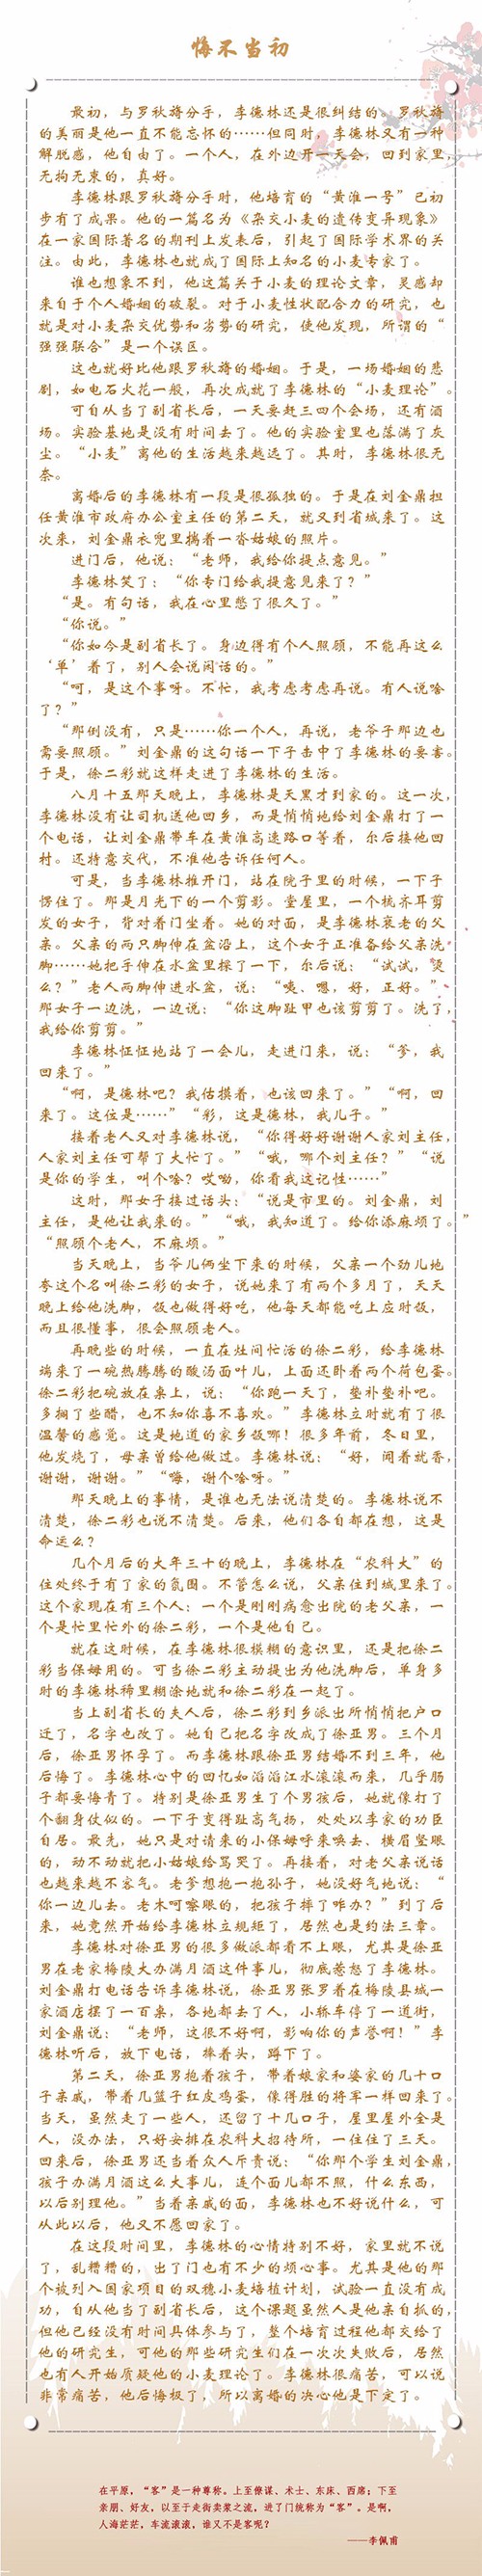 悔不当初
最初，与罗秋旖分手，李德林还是很纠结的。罗秋旖
的美丽是他一直不能忘怀的……但同时，李德林又有一种
解脱感，他自由了。一个人，在外边开一天会，回到家里，
无拘无束的，真好。
李德林跟罗秋旖分手时，他培育的“黄淮一号”已初
步有了成果。他的一篇名为《杂交小麦的遗传变异现象》
在一家国际著名的期刊上发表后，引起了国际学术界的关
注。由此，李德林也就成了国际上知名的小麦专家了。
谁也想象不到，他这篇关于小麦的理论文章，灵感却
来自于个人婚姻的破裂。对于小麦性状配合力的研究，也
就是对小麦杂交优势和劣势的研究，使他发现，所谓的“
强强联合”是一个误区。
这也就好比他跟罗秋旖的婚姻。于是，一场婚姻的悲
剧，如电石火花一般，再次成就了李德林的“小麦理论”。
可自从当了副省长后，一天要赶三四个会场，还有酒
场。实验基地是没有时间去了。他的实验室里也落满了灰
尘。“小麦”离他的生活越来越远了。其时，李德林很无
奈。
离婚后的李德林有一段是很孤独的。于是在刘金鼎担
任黄淮市政府办公室主任的第二天，就又到省城来了。这
次来，刘金鼎衣兜里揣着一沓姑娘的照片。
进门后，他说：“老师，我给你提点意见。”
李德林笑了：“你专门给我提意见来了？”
“是。有句话，我在心里憋了很久了。”
“你说。”
“你如今是副省长了。身边得有个人照顾，不能再这么
‘单’着了，别人会说闲话的。”
“呵，是这个事呀。不忙，我考虑考虑再说。有人说啥
了？”
“那倒没有，只是……你一个人，再说，老爷子那边也
需要照顾。”刘金鼎的这句话一下子击中了李德林的要害。
于是，徐二彩就这样走进了李德林的生活。
八月十五那天晚上，李德林是天黑才到家的。这一次，
李德林没有让司机送他回乡，而是悄悄地给刘金鼎打了一
个电话，让刘金鼎带车在黄淮高速路口等着，尔后接他回
村。还特意交代，不准他告诉任何人。
可是，当李德林推开门，站在院子里的时候，一下子
愣住了。那是月光下的一个剪影。堂屋里，一个梳齐耳剪
发的女子，背对着门坐着。她的对面，是李德林衰老的父
亲。父亲的两只脚伸在盆沿上，这个女子正准备给父亲洗
脚……她把手伸在水盆里探了一下，尔后说：“试试，烫
么？”老人两脚伸进水盆，说：“咦、嗯，好，正好。”
那女子一边洗，一边说：“你这脚趾甲也该剪剪了。洗了，
我给你剪剪。”
李德林怔怔地站了一会儿，走进门来，说：“爹，我
回来了。”
“啊，是德林吧？我估摸着，也该回来了。”“啊，回
来了。这位是……”“彩，这是德林，我儿子。”
接着老人又对李德林说，“你得好好谢谢人家刘主任，
人家刘主任可帮了大忙了。”“哦，哪个刘主任？”“说
是你的学生，叫个啥？哎呦，你看我这记性……”
这时，那女子接过话头：“说是市里的。刘金鼎，刘
主任，是他让我来的。”“哦，我知道了。给你添麻烦了。”
“照顾个老人，不麻烦。”
当天晚上，当爷儿俩坐下来的时候，父亲一个劲儿地
夸这个名叫徐二彩的女子，说她来了有两个多月了，天天
晚上给他洗脚，饭也做得好吃，他每天都能吃上应时饭，
而且很懂事，很会照顾老人。
再晚些的时候，一直在灶间忙活的徐二彩，给李德林
端来了一碗热腾腾的酸汤面叶儿，上面还卧着两个荷包蛋。
徐二彩把碗放在桌上，说：“你跑一天了，垫补垫补吧。
多搁了些醋，也不知你喜不喜欢。”李德林立时就有了很
温馨的感觉。这是地道的家乡饭哪！很多年前，冬日里，
他发烧了，母亲曾给他做过。李德林说：“好，闻着就香，
谢谢，谢谢。”“嗨，谢个啥呀。”
那天晚上的事情，是谁也无法说清楚的。李德林说不
清楚，徐二彩也说不清楚。后来，他们各自都在想，这是
命运么？
几个月后的大年三十的晚上，李德林在“农科大”的
住处终于有了家的氛围。不管怎么说，父亲住到城里来了。
这个家现在有三个人：一个是刚刚病愈出院的老父亲，一
个是忙里忙外的徐二彩，一个是他自己。
就在这时候，在李德林很模糊的意识里，还是把徐二
彩当保姆用的。可当徐二彩主动提出为他洗脚后，单身多
时的李德林稀里糊涂地就和徐二彩在一起了。
当上副省长的夫人后，徐二彩到乡派出所悄悄把户口
迁了，名字也改了。她自己把名字改成了徐亚男。三个月
后，徐亚男怀孕了。而李德林跟徐亚男结婚不到三年，他
后悔了。李德林心中的回忆如滔滔江水滚滚而来，几乎肠
子都要悔青了。特别是徐亚男生了个男孩后，她就像打了
个翻身仗似的。一下子变得趾高气扬，处处以李家的功臣
自居。最先，她只是对请来的小保姆呼来唤去、横眉竖眼
的，动不动就把小姑娘给骂哭了。再接着，对老父亲说话
也越来越不客气。老爹想抱一抱孙子，她没好气地说：“
你一边儿去。老木呵嚓眼的，把孩子摔了咋办？”到了后
来，她竟然开始给李德林立规矩了，居然也是约法三章。
李德林对徐亚男的很多做派都看不上眼，尤其是徐亚
男在老家梅陵大办满月酒这件事儿，彻底惹怒了李德林。
刘金鼎打电话告诉李德林说，徐亚男张罗着在梅陵县城一
家酒店摆了一百桌，各地都去了人，小轿车停了一道街，
刘金鼎说：“老师，这很不好啊，影响你的声誉啊！”李
德林听后，放下电话，捧着头，蹲下了。
第二天，徐亚男抱着孩子，带着娘家和婆家的几十口
子亲戚，带着几篮子红皮鸡蛋，像得胜的将军一样回来了。
当天，虽然走了一些人，还留了十几口子，屋里屋外全是
人，没办法，只好安排在农科大招待所，一住住了三天。
回来后，徐亚男还当着众人斥责说：“你那个学生刘金鼎，
孩子办满月酒这么大事儿，连个面儿都不照，什么东西，
以后别理他。”当着亲戚的面，李德林也不好说什么，可
从此以后，他又不愿回家了。
在这段时间里，李德林的心情特别不好，家里就不说
了，乱糟糟的，出了门也有不少的烦心事。尤其是他的那
个被列入国家项目的双穗小麦培植计划，试验一直没有成
功，自从他当了副省长后，这个课题虽然人是他亲自抓的，
但他已经没有时间具体参与了，整个培育过程他都交给了
他的研究生，可他的那些研究生们在一次次失败后，居然
也有人开始质疑他的小麦理论了。李德林很痛苦，可以说
非常痛苦，他后悔极了，所以离婚的决心他是下定了。
在平原，“客”是一种尊称。上至僚谋、术士、东床、西席；下至
亲朋、好友，以至于走街卖浆之流，进了门统称为“客”。是啊，
人海茫茫，车流滚滚，谁又不是客呢？
——李佩甫